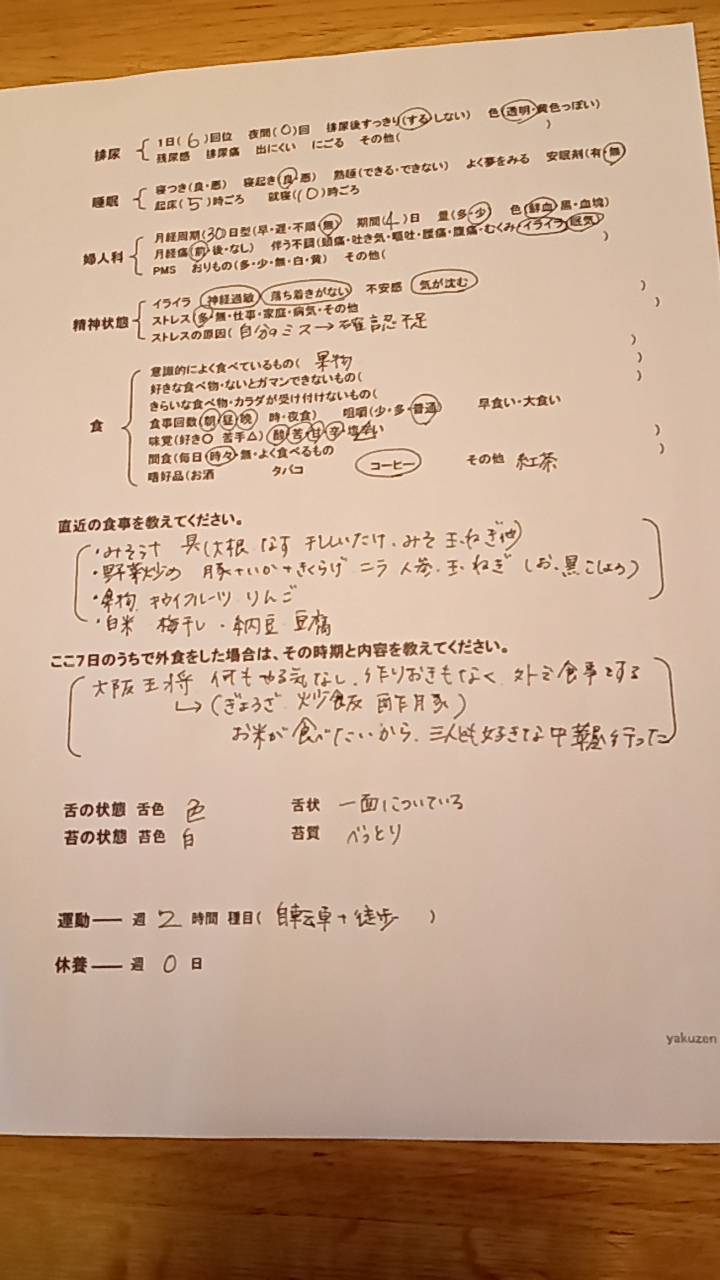 排尿 1日(6)回位 夜間(0)回 排尿後すっきり(する・しない) 色(透明・黄色っぽい)
残尿感 排尿痛 出にくい にごる その他( )
睡眠 寝つき(良・悪) 寝起き(良・悪) 熟睡(できる・できない) よく夢をみる 安眠剤(有・無)
起床(5)時ごろ 就寝(10)時ごろ
婦人科 月経周期(30)日型(早・遅・不順・無) 期間(4)日 量(多・少) 色(鮮血・黒・血塊)
月経痛(前・後・なし) 伴う不調(頭痛・吐き気・嘔吐・腰痛・腹痛・むくみ・イライラ・眠気)
PMS おりもの(多・少・無・白・黄) その他( )
精神状態 イライラ 神経過敏 落ち着きがない 不安感 気が沈む )
ストレス(多・無・仕事・家庭・病気・その他 )
ストレスの原因(自分のミス→確認不足 )
食 意識的によく食べているもの(果物 )
好きな食べ物・ないとガマンできないもの( )
きらいな食べ物・カラダが受け付けないもの(
食事回数(朝・昼・晩 時・夜食) 咀嚼(少・多・普通) 早食い・大食い
味覚(好き○ 苦手△)(酸・苦・甘・辛・塩辛い )
間食(毎日・時々・無・よく食べるもの )
嗜好品(お酒 タバコ コーヒー その他 紅茶
直近の食事を教えてください。
・みそ汁 具(大根 なす 干ししいたけ、みそ 玉ねぎ他)
・野菜炒め 豚+いか+きくらげ ニラ 人参、玉ねぎ (しお、黒こしょう)
・果物 キウイフルーツ りんご
・白米 梅干し・納豆 豆腐
ここ7日のうちで外食をした場合は、その時期と内容を教えてください。
大阪王将 何もやる気なし、作りおきもなく 外で食事をする
↳(ぎょうざ 炒飯 酢豚)
お米が食べたいから、三人とも好きな中華屋行った
舌の状態 舌色 色 舌状 一面についている
苔の状態 苔色 白 苔質 べっとり
運動── 週 2 時間 種目(自転車+徒歩 )
休養── 週 0 日
yakuzen